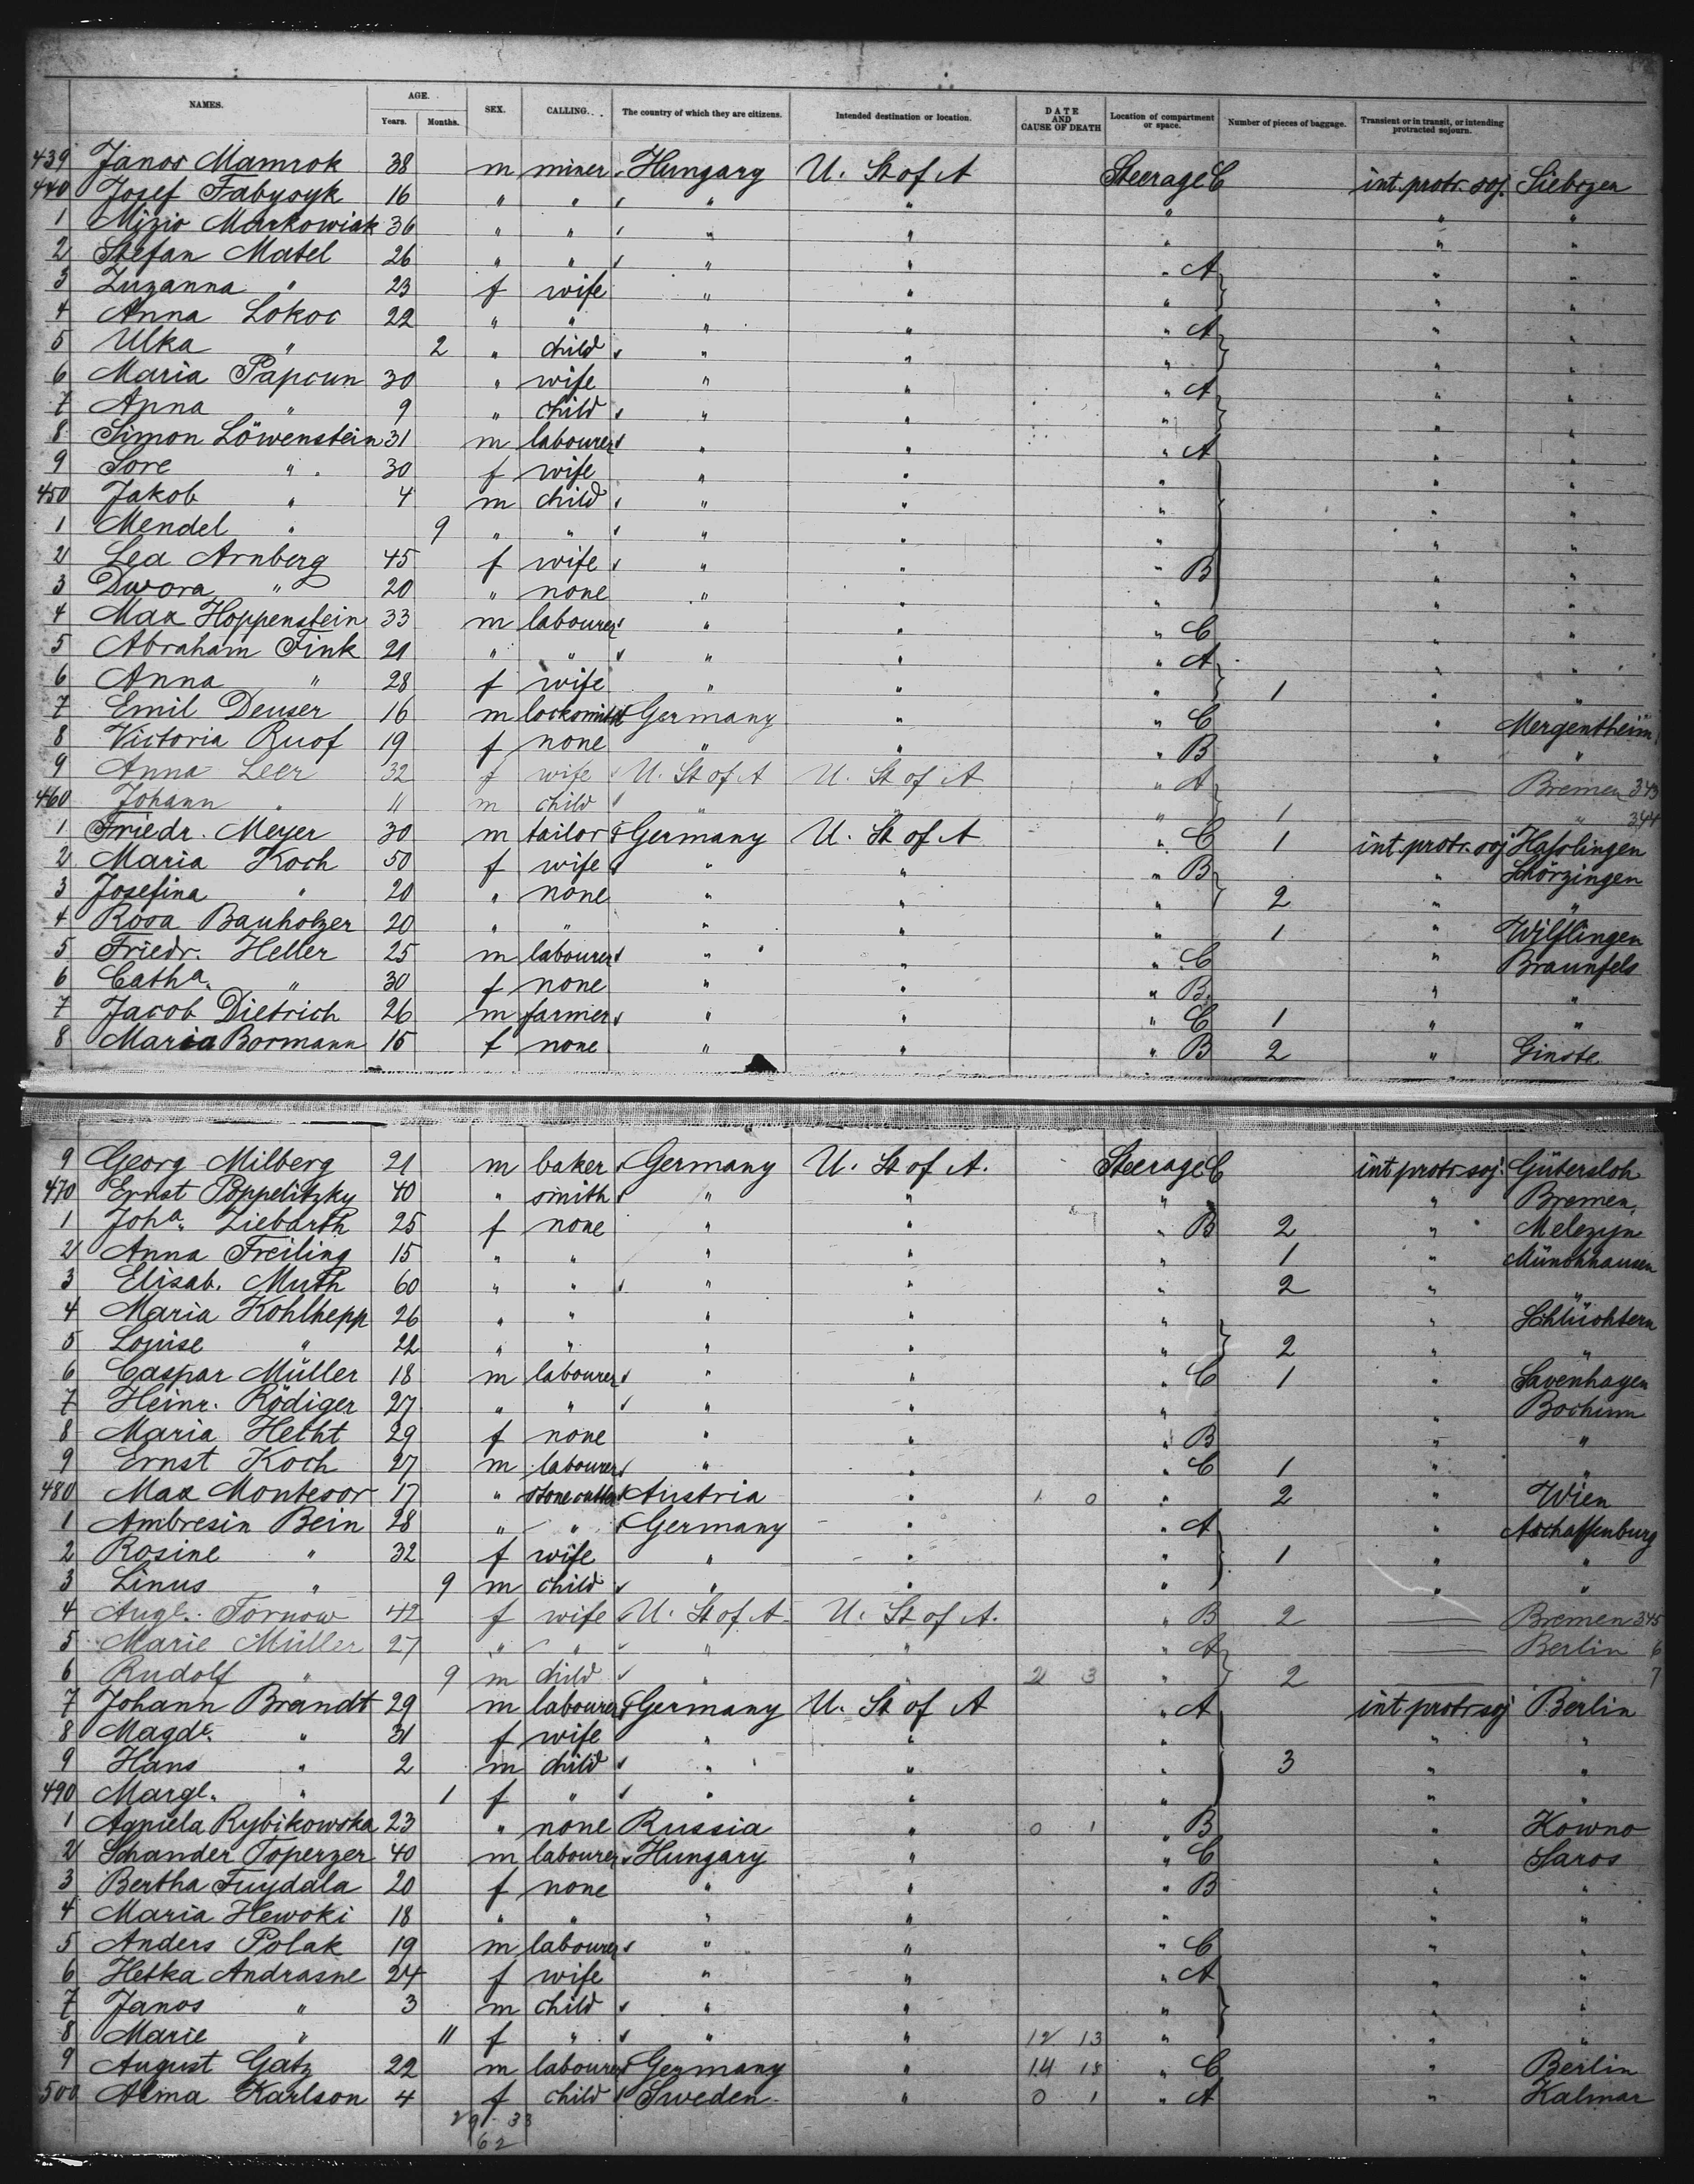 NAMES. AGE. SEX. CALLING. The country of which they are citizens. Intended destination or location. DATE AND CAUSE OF DEATH Location of compartment or space. Number of pieces of baggage. Transient or in transit, or intending protracted sojourn.
Years. Months.
439 Janos Mamrok 38 m miner Hungary U. St of A Steerage C int. protr. soj. Siebrzen
440 Josef Fabysyk 16 " " " " " " "
1 Mizio Markowiak 36 " " " " " " "
2 Stefan Matel 26 " " " " " A " "
3 Zuzanna " 23 f wife " " " " "
4 Anna Lokoc 22 " " " " " A " "
5 Ulka " 2 " child " " " " "
6 Maria Papcun 30 " wife " " " A " "
7 Anna " 9 " child " " " " "
8 Simon Löwenstein 31 m labourer " " " A " "
9 Sore " 30 f wife " " " " "
450 Jakob " 4 m child " " " " "
1 Mendel " 9 " " " " " " "
2 Lea Arnberg 45 f wife " " " B " "
3 Dwora " 20 " none " " " " "
4 Max Hoppenstein 33 m labourer " " " C " "
5 Abraham Fink 21 " " " " " A " "
6 Anna " 28 f wife " " " 1 " "
7 Emil Deuser 16 m locksmith Germany " " C " Mergentheim
8 Victoria Ruof 19 f none " " " B " "
9 Anna Leer 32 f wife U. St of A U. St of A " A — Bremen 343
460 Johann " 11 m child " " " 1 — " 344
1 Friedr. Meyer 30 m tailor Germany U. St of A " C 1 int. protr. soj Hasslingen
2 Maria Koch 50 f wife " " " B " Schörzingen
3 Josefina " 20 " none " " " 2 " "
4 Rosa Bauholzer 20 " " " " " 1 " Wilflingen
5 Friedr. Heller 25 m labourer " " " C " Braunfels
6 Catha. " 30 f none " " " B " "
7 Jacob Dietrich 26 m farmer " " " C 1 " "
8 Maria Bormann 15 f none " " " B 2 " Ginste
9 Georg Milberg 21 m baker Germany U. St of A. Steerage C int protr soj. Gütersloh
470 Ernst Poppelitzky 40 " smith " " " " Bremen
1 Joha. Ziebarth 25 f none " " " B 2 " Melezyn
2 Anna Freiling 15 " " " " " 1 " Münchhausen
3 Elisab. Muth 60 " " " " " 2 " "
4 Maria Kohlhepp 26 " " " " " " Schlüchtern
5 Louise " 22 " " " " " 2 " "
6 Caspar Müller 18 m labourer " " " C 1 " Savenhagen
7 Heinr. Rödiger 27 " " " " " " Bochum
8 Maria Hecht 29 f none " " " B " "
9 Ernst Koch 27 m labourer " " " C 1 " "
480 Max Montesor 17 " stone cutter Austria " 1 0 " 2 " Wien
1 Ambresin Bein 28 " " Germany " " A " Aschaffenburg
2 Rosine " 32 f wife " " " 1 " "
3 Linus " 9 m child " " " " "
4 Augl. Tornow 42 f wife U. St of A. U. St of A. " B 2 — Bremen 345
5 Marie Müller 27 " " " " " A — Berlin 6
6 Rudolf " 9 m child " " 2 3 " 2 — " 7
7 Johann Brandt 29 m labourer Germany U. St of A " A int protr soj Berlin
8 Magde. " 31 f wife " " " " "
9 Hans " 2 m child " " " 3 " "
490 Margl. " 1 f " " " " " "
1 Agniela Rybikowska 23 " none Russia " 0 1 " B " Kowno
2 Schander Toperzer 40 m labourer Hungary " " C " Saros
3 Bertha Fuydala 20 f none " " " B " "
4 Maria Hewoki 18 " " " " " " "
5 Anders Polak 19 m labourer " " " C " "
6 Hetka Andrasne 24 f wife " " " A " "
7 Janos " 3 m child " " " " "
8 Marie " 11 f " " " 12 13 " " "
9 August Gatz 22 m labourer Germany " 14 18 " C " Berlin
500 Alma Karlson 4 f child Sweden " 0 1 " A " Kalmar
29 - 33
62